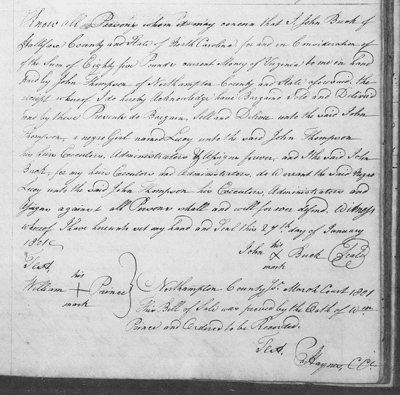 Know all Persons whom it may concern that I John Buck of
Hallifax County and State of North Carolina for and in Consideration of
of the Sum of Eighty five Pounds current Money of Virginia to me in hand
paid by John Thompson of Northampton County and State aforesaid the
receipt whereof I do hereby Acknowledge have Bargain Sold and Delivered
and by these Presents do Bargain Sell and Deliver unto the said John
Thompson, a negro Girl named Lucy unto the said John Thompson
his heirs Executors, Administrators & Assigns forever, and I the said John
Buck, for my heirs Executors and Administrators, do Warrant the said Negro
Lucy unto the said John Thompson his Executors, Administrators and
Assigns against all Persons shall and will forever defend. Witness
whereof I have hereunto set my hand and Seal this 27th day of January
John his x mark Buck (Seal)
Test,
William his + mark Prince
Northampton County Sc. March Court 1801
This Bill of Sale was proved by the Oath of Wm
Prince and Ordered to be Recorded.
Test. Haynes, CCC